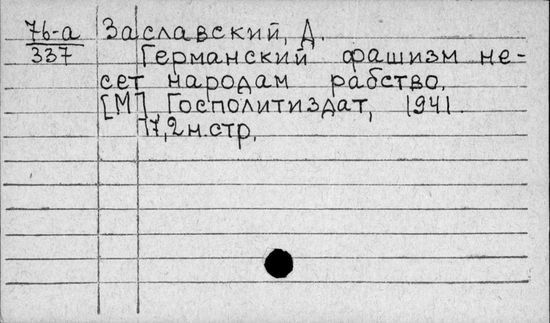 76-а Заславский, Д.
337 Германский фашизм не-
сет народам рабство.
[М] Госполитиздат, 1941.
17,2 н.стр.